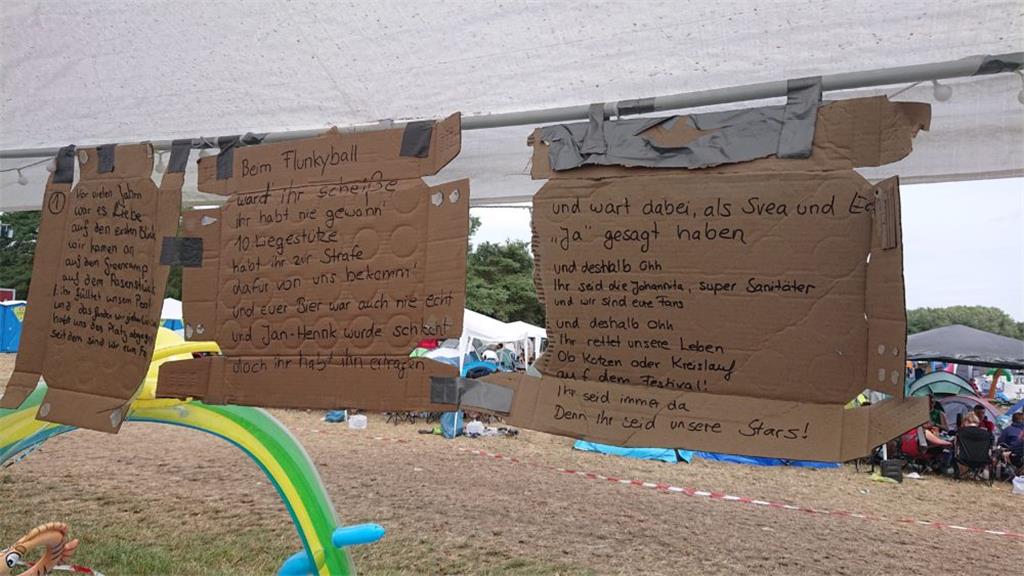 ①
Vor vielen Jahren
war es Liebe
auf den ersten Blick
wir kamen an
auf den Greencamp
auf dem Rosenstück
ihr fülltet unsern Pool
und das fanden wir
habt uns den Platz
seitdem sind wir eure
Beim Flunkyball
ward ihr scheiße
ihr habt nie gewonn'
10 Liegestütze
habt ihr zur Strafe
dafür von uns bekomm'
und euer Bier war auch nie echt
und Jan-Henrik wurde schlecht
doch ihr habt ihn ertragen
und wart dabei, als Svea und
„Ja" gesagt haben
und deshalb Ohh
Ihr seid die Johannita, super Sanitäter
und wir sind eure Fans
und deshalb Ohh
Ihr rettet unsere Leben
Ob Kotzen oder Kreislauf
auf dem Festival!
Ihr seid immer da
Denn ihr seid unsere Stars!